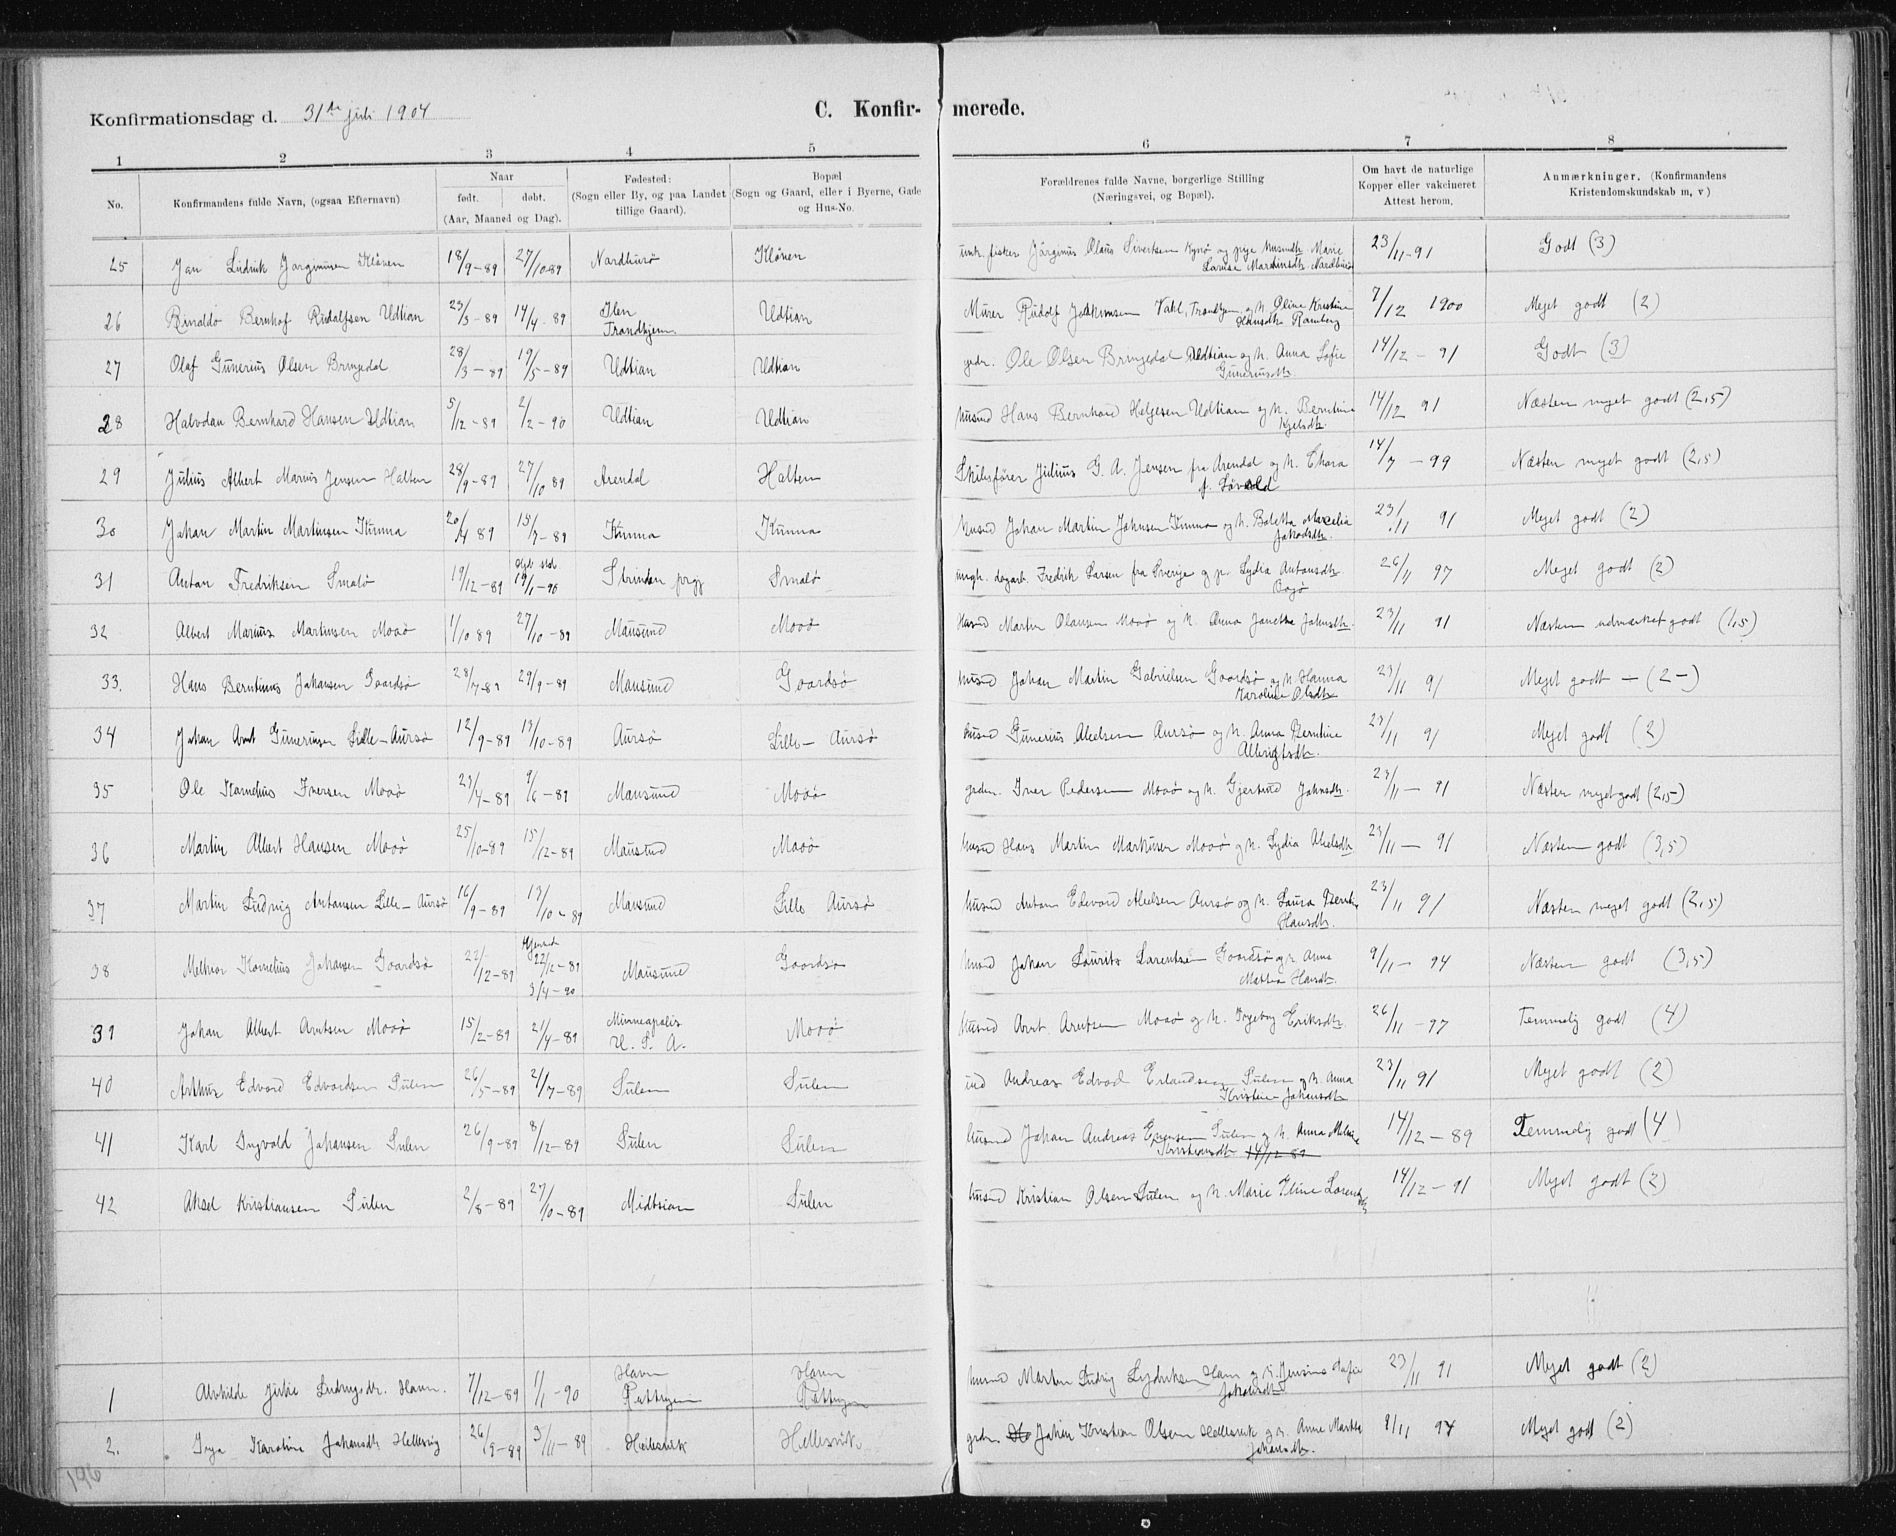 Konfirmationsdag d. 31te juli 1904
C. Konfirmerede.
1 2 3 4 5 6 7 8
No. Konfirmandens fulde Navn, (ogsaa Efternavn) Naar født. døbt. (Aar, Maaned og Dag). Fødested: (Sogn eller By, og paa Landet tillige Gaard). Bopæl (Sogn og Gaard, eller i Byerne, Gade og Hus-No. Forældrenes fulde Navne, borgerlige Stilling (Næringsvei, og Bopæl). Om havt de naturlige Kopper eller vakcineret Attest herom. Anmærkninger. (Konfirmandens Kristendomskundskab m, v)
25 Jan Ludvik Jørginusen Kløven 18/9-89 27/10-89 Nordhusø Kløven fisker Jørginus Olaus Sivertsen og pige Marie Larise Martinsdtr. 23/11-91 Godt (3)
26 Bernhof Rudolfsen Udtian 23/3-89 14/4-89 Ilen Trondhjem Udtian Murer Rudolf Vahl, Trondhjem og h. Oline Kristine Hansdtr. Ramberg 7/12 1900 Meget godt (2)
27 Olaf Gunerius Olsen Bringedal 28/3-89 19/5-89 Udtian Udtian grdr. Ole Olsen Bringedal Udtian og h. Anna Sofie Guneriusdtr. 14/12-91 Godt (3)
28 Halvdan Bernhard Hansen Udtian 5/12-89 2/2-90 Udtian Udtian husmd Hans Bernhard Helgesen Udtian og h. Berntine Kjelsdtr. 14/12 91 Næsten meget godt (2,5)
29 Julius Albert Marius Jensen Halten 28/9-89 27/10 89 Arendal Halten Skibsfører Julius G. A. Jensen fra Arendal og h. Thora f. Løvold 14/7-99 Næsten meget godt (2,5)
30 Johan Martin Martinsen Kunna 20/4 89 15/7-89 Kunna Kunna husmd Johan Martin Johnsen Kunna og h. Boletta Marcelia Jakobsdtr. 23/11 91 Meget godt (2)
31 Anton Fredriksen Smalø 19/12-89 19/1-90 Strinden prgj Smalø ungk. dagarb. Fredrik Larsen fra Sverige og p. Lydia Antonsdtr. Bogø 26/11 97 Meget godt (2)
32 Albert Marius Martinsen Moaø 1/10 89 27/10-89 Mausund Moaø husmd Martin Olausen Moaø og h. Anna Janetta Johnsdtr. 23/11 91 Næsten udmærket godt (1,5)
33. Hans Berntinus Johansen Gaardsø 28/7-89 29/9-89 Mausund Gaardsø husmd Johan Martin Gabrielsen Gaardsø og h. Hanna Karoline Olsdtr. 23/11 91 Meget godt - (2-)
34 Johan Arnt Guneriusen Lille-Aursø 12/9-89 13/10-89 Aursø Lille-Aursø husmd Gunerius Akselsen Aursø og h. Anna Berntine Albrigtsdtr. 23/11 91 Meget godt (2)
35 Ole Kornelius Iversen Moaø 23/4-89 9/6-89 Mausund Moaø grdm. Iver Pedersen Moaø og h. Gjertrud Johnsdtr. 23/11-91 Næsten meget godt (2,5)
36 Martin Albert Hansen Moaø 25/10-89 15/12-89 Mausund Moaø husmd Hans Martin Markusen Moaø og h. Lydia Akselsdtr 23/11-91 Næsten godt (3,5)
37 Martin Ludvig Antonsen Lille-Aursø 16/9-89 13/10-89 Mausund Lille Aursø husmd Anton Edvard Akselsen Aursø og h. Laura Hansdtr. 23/11 91 Næsten meget godt (2,5)
38 Melkior Kornelius Johansen Gaardsø 22/12-89 Hjemmed. 22/12-89 9/4-90 Mausund Gaardsø husmd Johan Laurits Larentsen Gaardsø og h. Anna Mattea Hansdtr. 9/11-94 Næsten godt (3,5)
39 Johan Albert Arntsen Moaø 15/2-89 21/4-89 Minneapolis U. S. A. Moaø husmd Arnt Arntsen Moaø og h. Ingebrg Eriksdtr 26/11-97 Temmelig godt (4)
40 Arthur Edvard Edvardsen Sulen 26/5-89 21/7-89 Sulen Sulen ind Andreas Edvard Erlandsen Sulen og h. Anna Kristine Johansdtr 23/11 91 Meget godt (2)
41 Karl Ingvald Johansen Sulen 26/9-89 8/12-89 Sulen Sulen husmd Johan Andreas Sulen og h. Anna Kristiansdtr 14/12 89 14/12-89 Temmelig godt (4)
42 Aksel Kristiansen Sulen 2/8-89 27/10-89 Midtsian Sulen husmd Kristian Olsen Sulen og h. Marie Eline 14/12-91 Meget godt (2)
1 Alvhilde Ludvigsdtr. Havn. 7/12-89 1/1-90 Havn Havn husmd Morten Ludvig Lydriksen Havn og h. Jensine Sofie Jakobsdtr 23/11 91 Meget godt (2)
2. Inga Karoline Johansdtr Hellesvig 26/9-89 3/11-89 Hellesvik Hellesvik grdm. Johan Kristian Olsen Hellesvik og h. Anne Martha Johansdtr. 9/11 94 Meget godt (2)
196